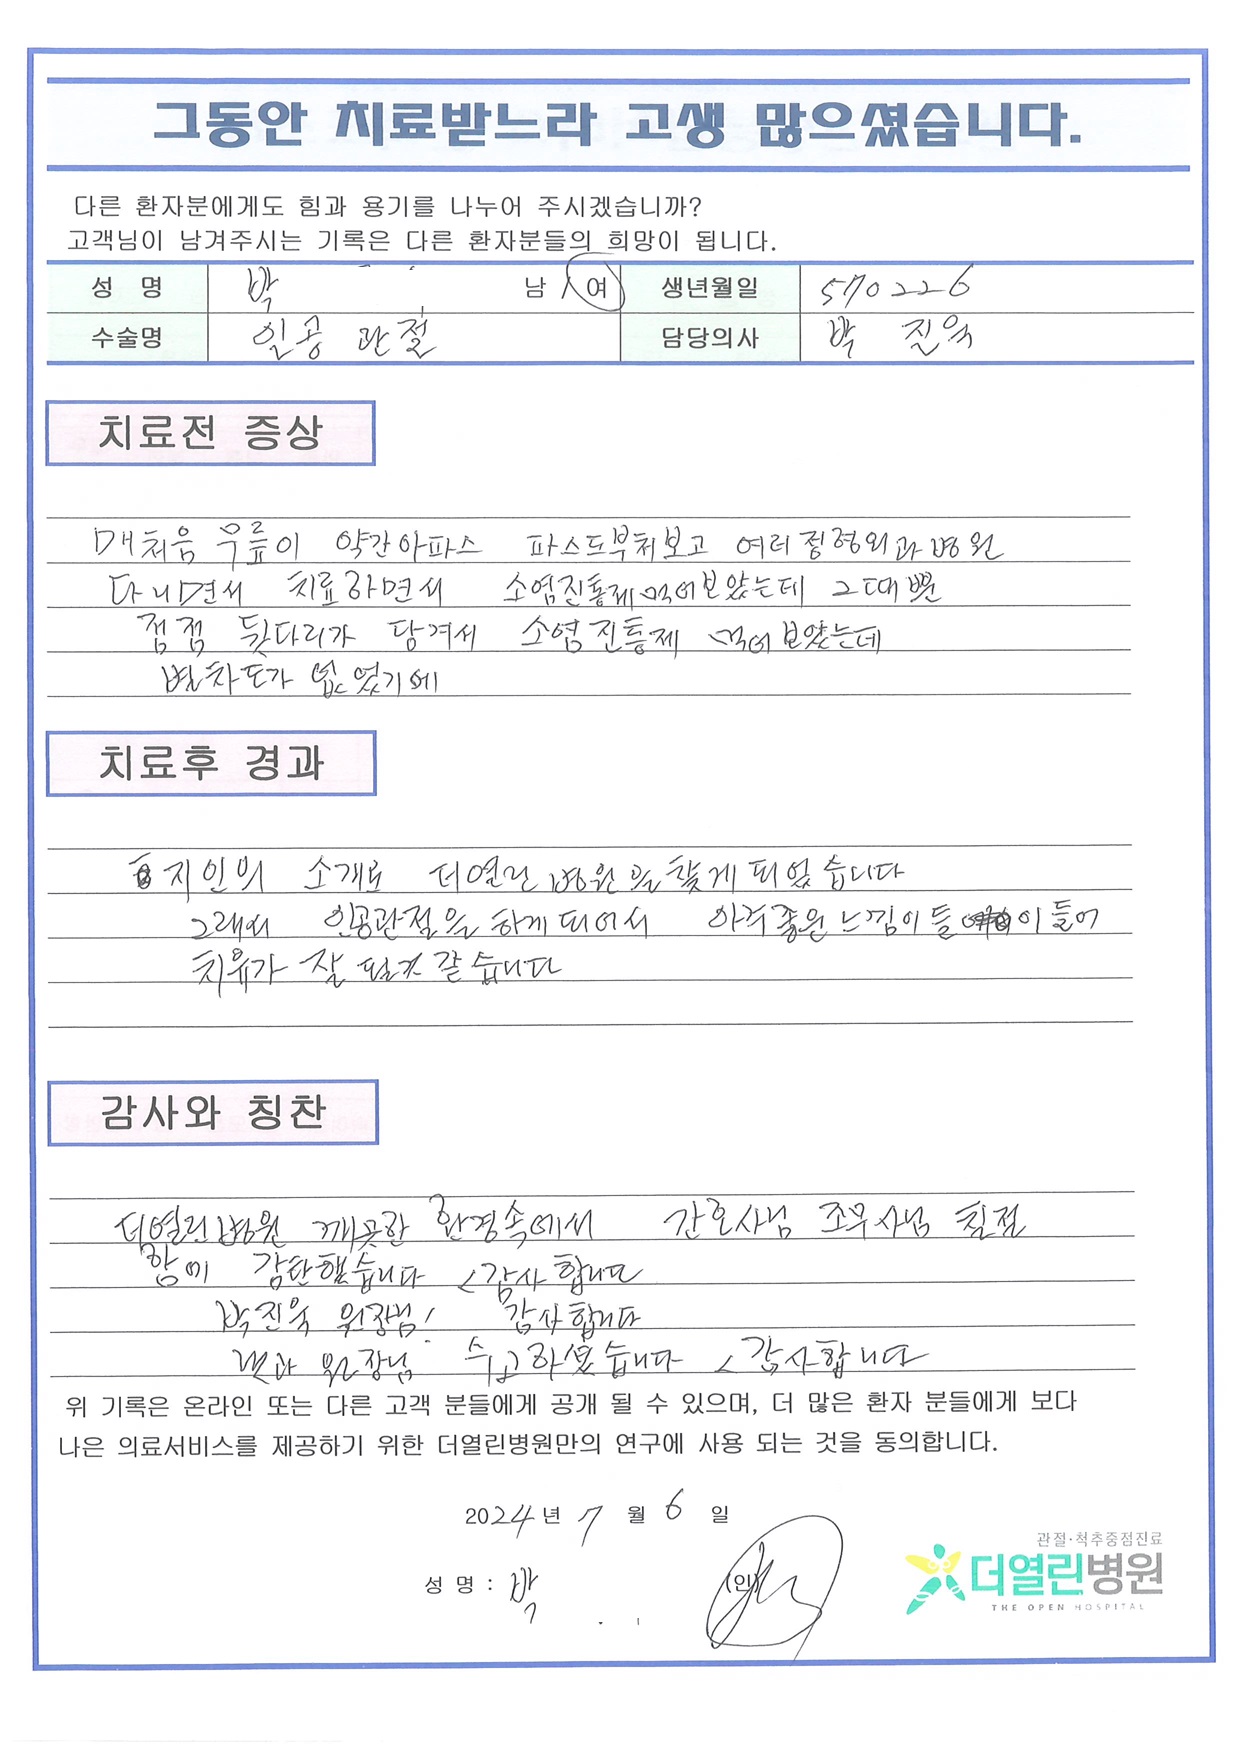 그동안 치료받느라 고생 많으셨습니다.
다른 환자분에게도 힘과 용기를 나누어 주시겠습니까?
고객님이 남겨주시는 기록은 다른 환자분들의 희망이 됩니다.
성 명 박 남 / 여 생년월일 570226
수술명 인공 관절 담당의사 박 진욱
치료전 증상
매처음 무릎이 약간아파스 파스드부쳐보고 여러정형외과병원
다니면서 치료하면서 소염진통제먹어보았는데 그때뿐
점점 뒷다리가 당겨서 소염진통제 먹어보았는데
별차도가 없었기에
치료후 경과
지인의 소개로 더열린병원을찾게되었습니다
그래서 인공관절을 하게되어서 아주좋은느낌이들 이들어
치유가 잘 될것같습니다
감사와 칭찬
더열린병원 깨끗한 환경속에서 간호사님 조무사님 친절
함에 감탄했습니다 감사합니다
박진욱 원장님! 감사합니다
원장님 수고하셨습니다 감사합니다
위 기록은 온라인 또는 다른 고객 분들에게 공개 될 수 있으며, 더 많은 환자 분들에게 보다
나은 의료서비스를 제공하기 위한 더열린병원만의 연구에 사용 되는 것을 동의합니다.
2024년 7월 6일
성 명 : 박 (인)
관절·척추중점진료
더열린병원
THE OPEN HOSPITAL